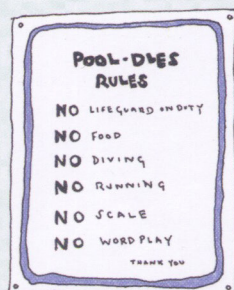 POOL-DLES
RULES
NO LIFEGUARD ON DUTY
NO FOOD
NO DIVING
NO RUNNING
NO SCALE
NO WORDPLAY
THANK YOU